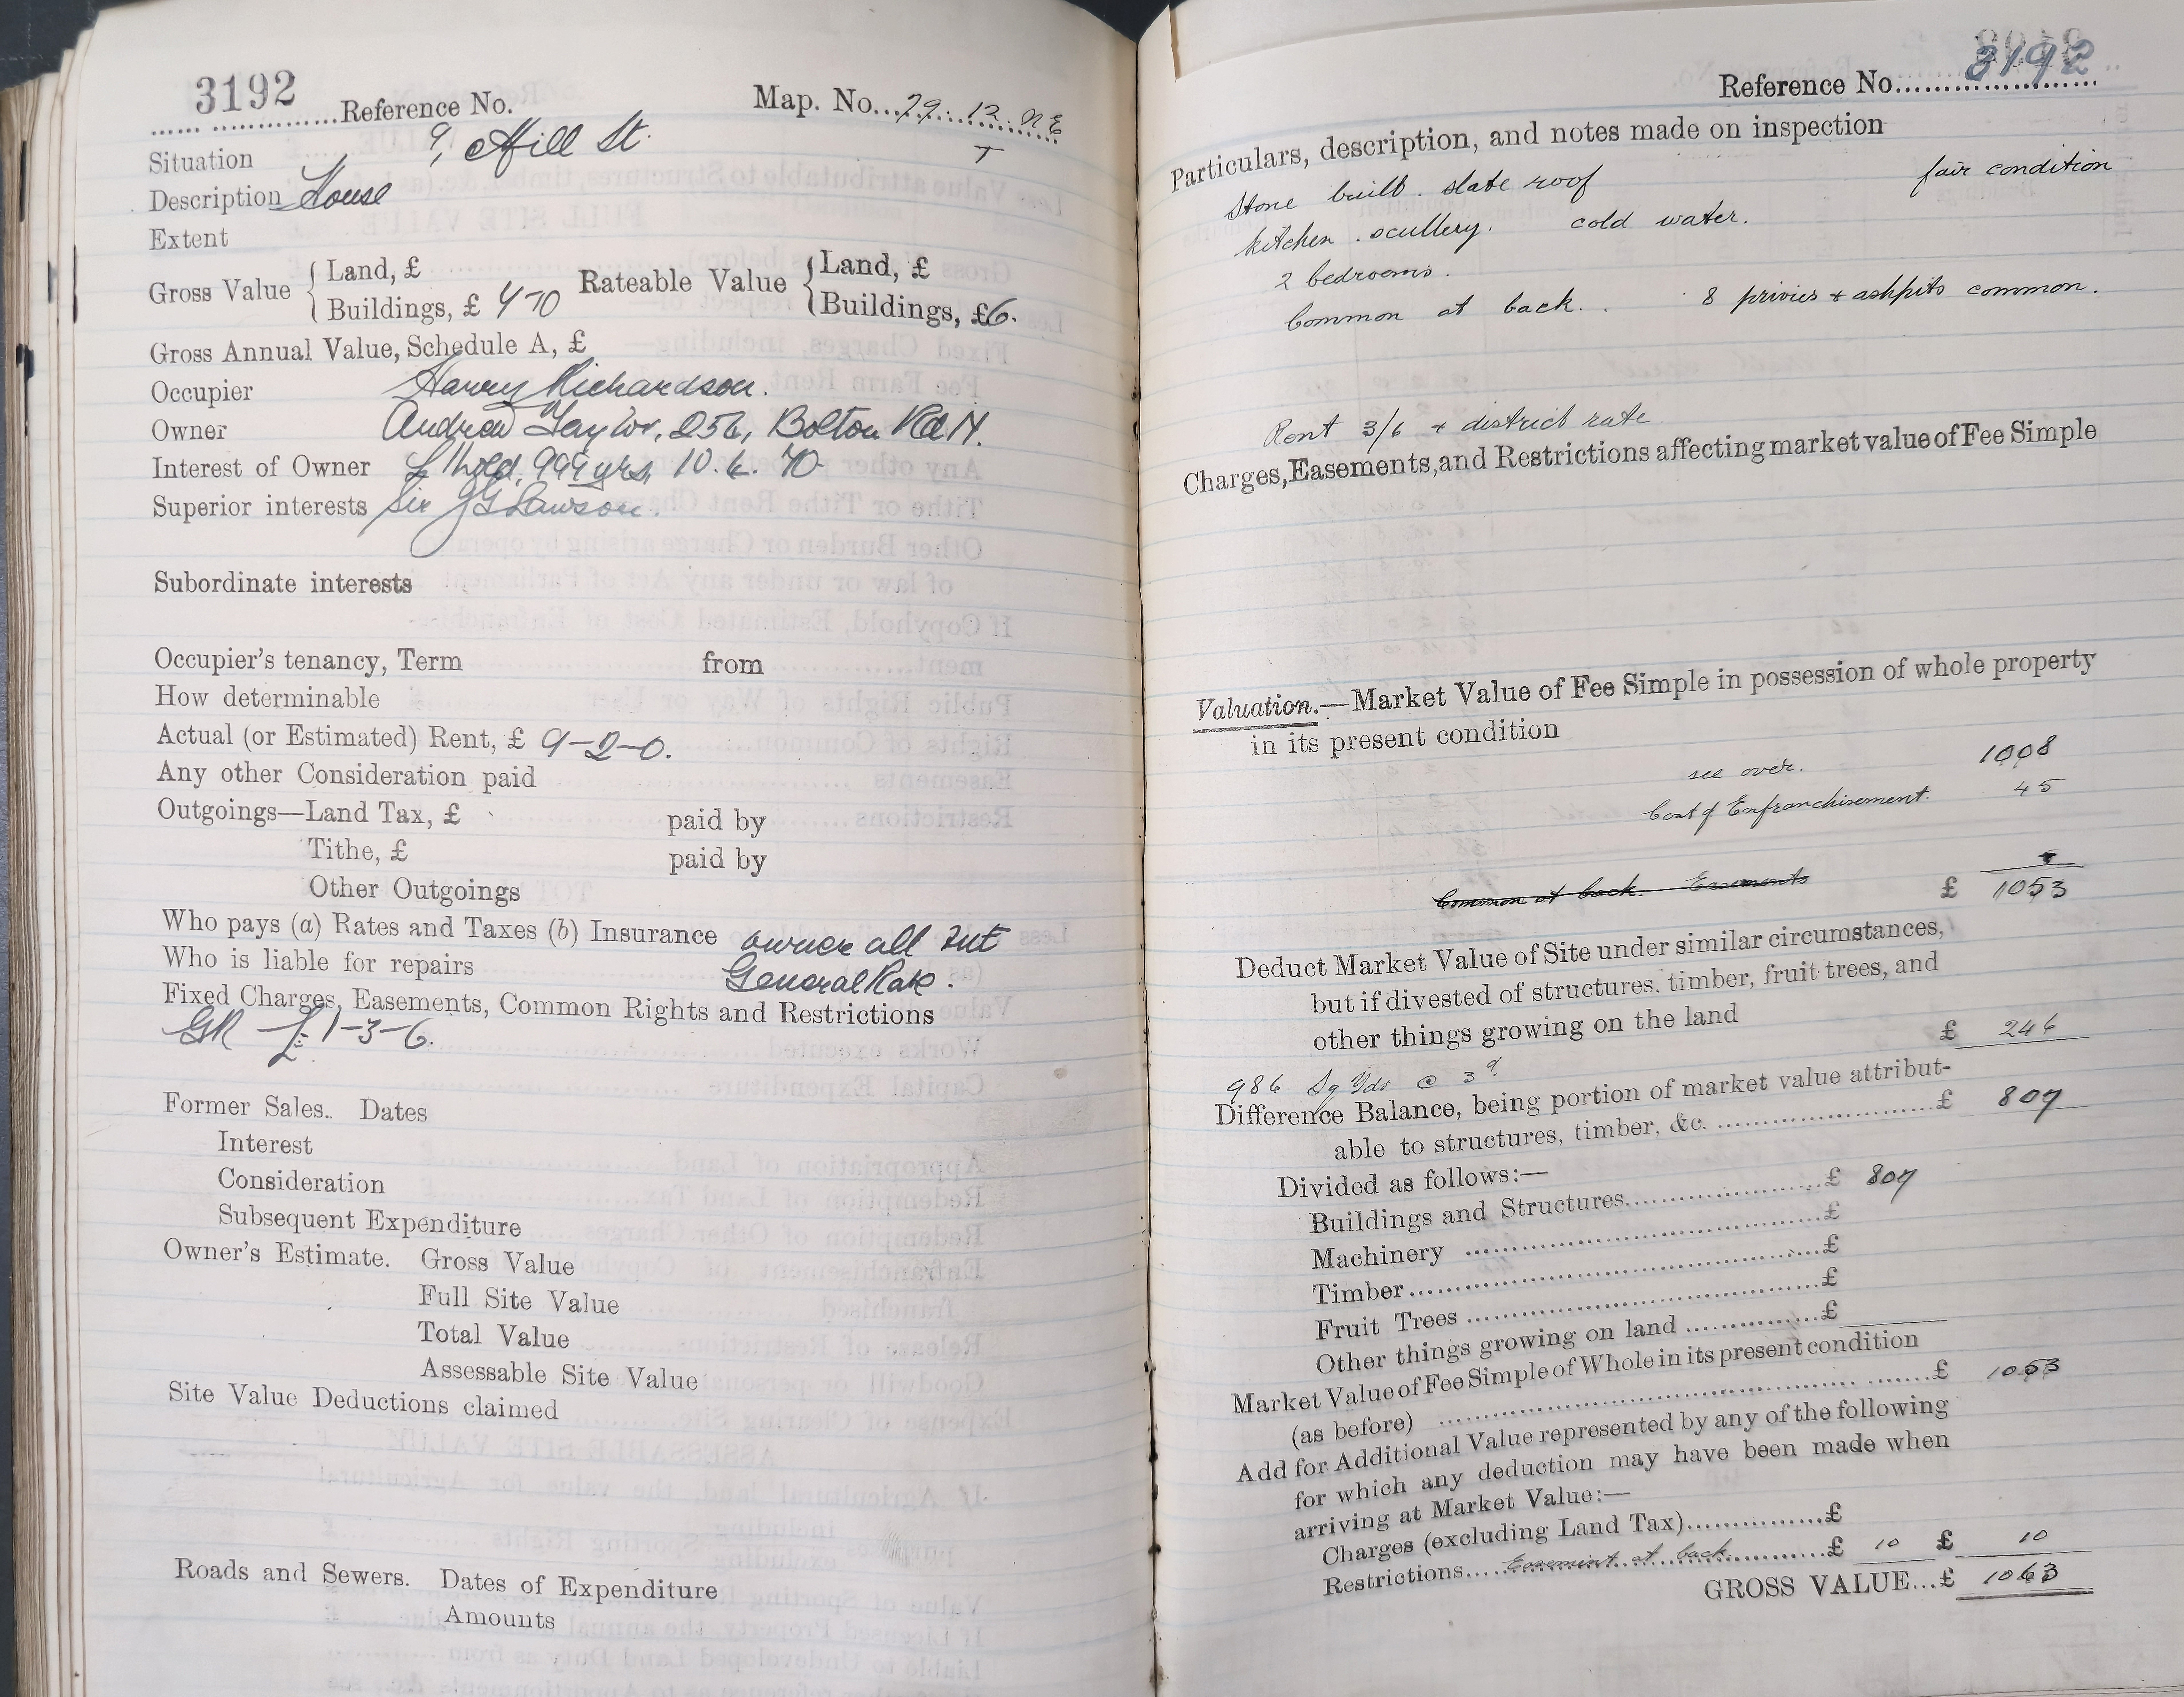 3192
Reference No. Map. No. 29. 12. NE
T
Situation 9, Hill St.
Description House
Extent
Gross Value { Land, £ Rateable Value { Land, £
Buildings, £ 7-10 Buildings, £6.
Gross Annual Value, Schedule A, £
Occupier Harry Richardson.
Owner Andrew Taylor, 256, Bolton Rd N.
Interest of Owner L'hold. 999 yrs, 10. 6. 70
Superior interests Sir J G Lawson.
Subordinate interests
Occupier's tenancy, Term from
How determinable
Actual (or Estimated) Rent, £ 9-2-0.
Any other Consideration paid
Outgoings—Land Tax, £ paid by
Tithe, £ paid by
Other Outgoings
Who pays (a) Rates and Taxes (b) Insurance owner all but
Who is liable for repairs General Rate.
Fixed Charges, Easements, Common Rights and Restrictions
GR £1-3-6.
Former Sales. Dates
Interest
Consideration
Subsequent Expenditure
Owner's Estimate. Gross Value
Full Site Value
Total Value
Assessable Site Value
Site Value Deductions claimed
Roads and Sewers. Dates of Expenditure
Amounts
Reference No. 3192
Particulars, description, and notes made on inspection
Stone built. slate roof fair condition
kitchen. scullery. cold water.
2 bedrooms.
Common at back. 8 privies + ashpits common.
Rent 3/6 + district rate
Charges, Easements, and Restrictions affecting market value of Fee Simple
Valuation.—Market Value of Fee Simple in possession of whole property
in its present condition
see over. 1008
Cost of Enfranchisement. 45
Common at back. Easements £ 1053
Deduct Market Value of Site under similar circumstances,
but if divested of structures, timber, fruit trees, and
other things growing on the land £ 246
986 Sq Yds @ 3d
Difference Balance, being portion of market value attribut-
able to structures, timber, &c. £ 807
Divided as follows:—
Buildings and Structures £ 807
Machinery £
Timber £
Fruit Trees £
Other things growing on land £
Market Value of Fee Simple of Whole in its present condition
(as before) £ 1053
Add for Additional Value represented by any of the following
for which any deduction may have been made when
arriving at Market Value:—
Charges (excluding Land Tax) £
Restrictions Easement at back £ 10 £ 10
GROSS VALUE... £ 1063